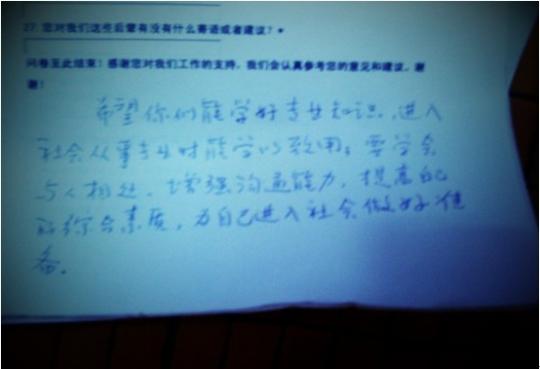 27. 您对我们这些后辈有没有什么寄语或者建议？*
问卷至此结束！感谢您对我们工作的支持，我们会认真参考您的意见和建议，谢
谢！
希望你们能学好专业知识，进入
社会从事专业时能学以致用；要学会
与人相处，增强沟通能力，提高自己
的综合素质，为自己进入社会做好准
备。